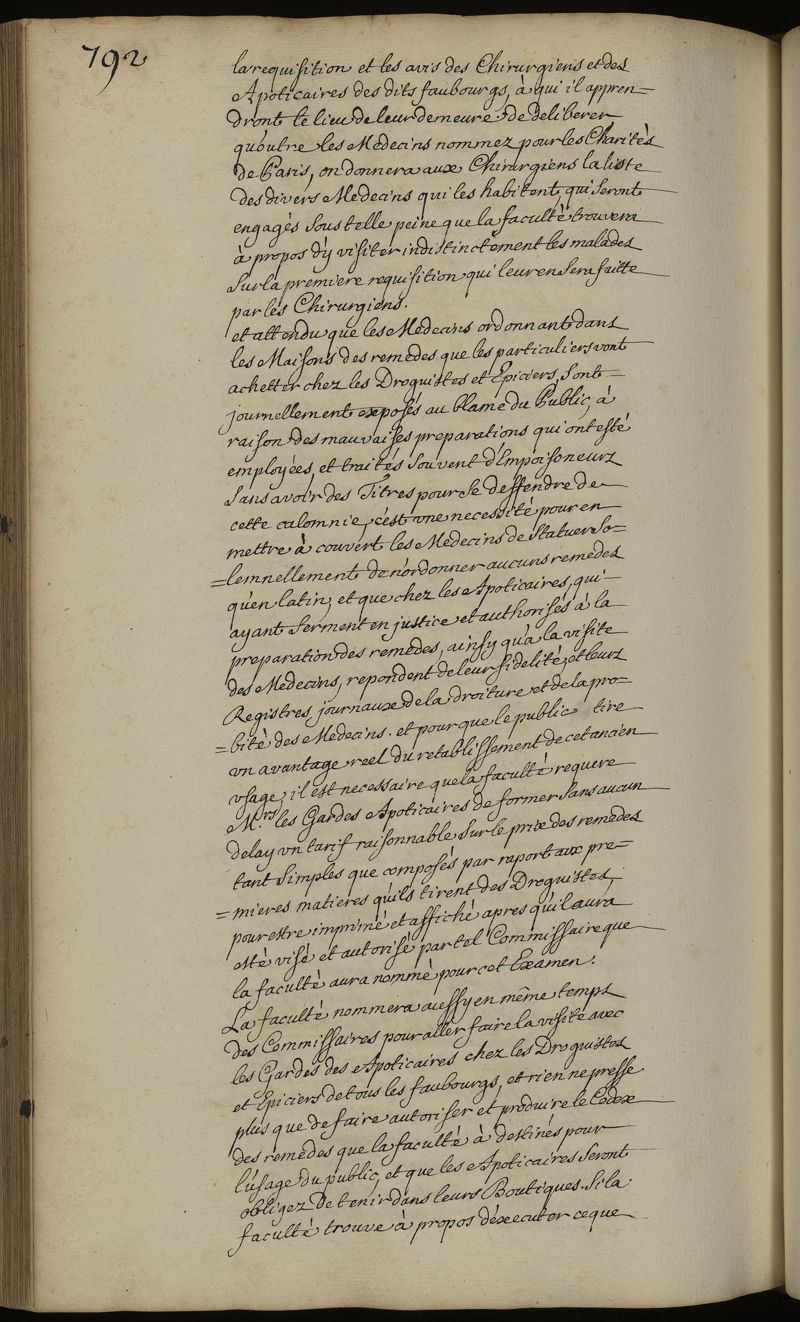 792
la requisition et les avis des Chirurgiens et des
Apoticaires des dits faubourgs, à qui il appren=
dront le lieu de leur demeure. de deliberer
qu'outre les Medecins nommez pour les Charités
de Paris, on donnera aux Chirurgiens la liste
des divers Medecins qui les habitent, qui seront
engagés sous telle peine que la faculté trouvera
à propos d'y visiter indistinctement les malades
sur la premiere requisition qui leur en sera faitte
par les Chirurgiens.
et attendu que les Medecins ordonnant dans
les Maisons des remedes que les particuliers vont
achetter chez les Droguistes et Epiciers, sont
journellement exposés au blame du Public, à
raison des mauvaises preparations qui ont esté
employées, et traités souvent d'Empoisoneurs
sans avoir des Titres pour se deffendre de
cette calomnie, c'est une necessité pour en
mettre à couvert les Medecins de statuer so=
=lemnellement de n'ordonner aucuns remedes
qu'en latin, et que chez les Apoticaires, qui
ayant serment en justice et authorisés à la
preparation des remedes, ainsy qu'à la visite
des Medecins, repondent de leur fidelité, et leurs
Registres journaux de la droiture et de la pro=
=bité des Medecins. et pour que le public tire
un avantage reel du retablissement de cet ancien
usage, il est necessaire que la faculté requere
M.rs les Gardes Apoticaires de former sans aucun
delay un tarif raisonnable sur le prix des remedes
tant simples que composés par raport aux pre=
=mieres matieres qu'ils tirent des Droguistes,
pour estre imprimé et affiché apres qu'il aura
esté visé et autorisé par tel Commissaire que
la faculté aura nommé pour cet Examen.
La faculté nommera aussy en même temps
des Commissaires pour aller faire la visite avec
les Gardes des Apoticaires chez les Droguistes
et Epiciers de tous les faubourgs, et rien ne presse
plus que de faire autoriser et produire le Codex
des remedes que la faculté à destinés pour
l'usage du public, et que les Apoticaires seront
obligez de tenir dans leurs Boutiques. si la
faculté trouve à propos d'executer ce que